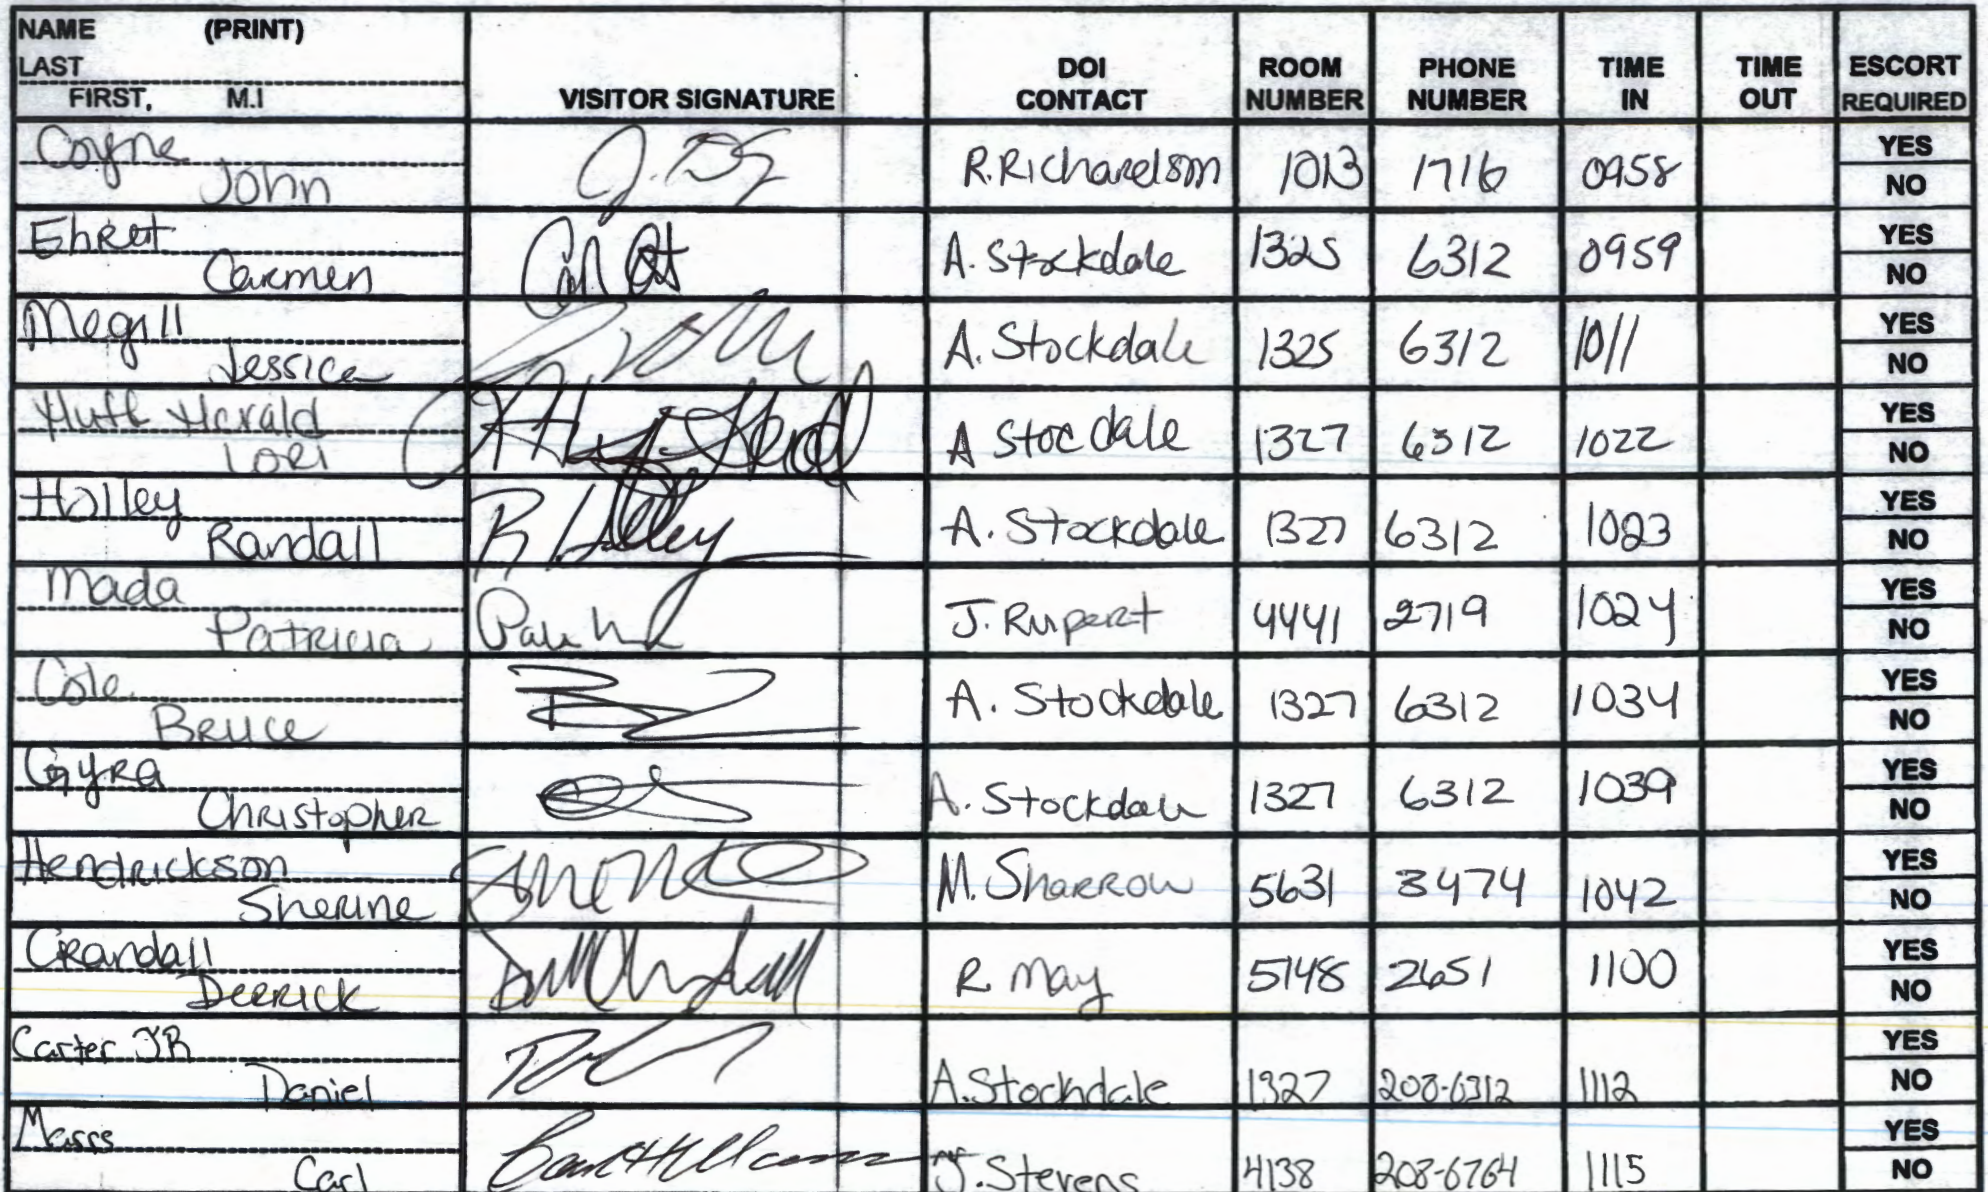 NAME (PRINT)
LAST
FIRST, M.I
VISITOR SIGNATURE
DOI CONTACT
ROOM NUMBER
PHONE NUMBER
TIME IN
TIME OUT
ESCORT REQUIRED
Coyne
John
R. Richardson 1013 1716 0958 YES NO
Ehret
Carmen
A. Stockdale 1325 6312 0959 YES NO
Megill
Jessica
A. Stockdale 1325 6312 1011 YES NO
Huff Herald
LORI
A Stocdale 1327 6312 1022 YES NO
Holley
Randall
R. Holley
A. Stockdale 1327 6312 1023 YES NO
Mada
Patricia
J. Rupert 4441 2719 1024 YES NO
Cole
Bruce
A. Stockdale 1327 6312 1034 YES NO
Gyra
Christopher
A. Stockdale 1327 6312 1039 YES NO
Hendrickson
Sherine
M. Sharrow 5631 3474 1042 YES NO
Crandall
Derrick
R. May 5148 2651 1100 YES NO
Carter JR
Daniel
A. Stockdale 1327 208-6312 1112 YES NO
Carl
J. Stevens 4138 208-6764 1115 YES NO